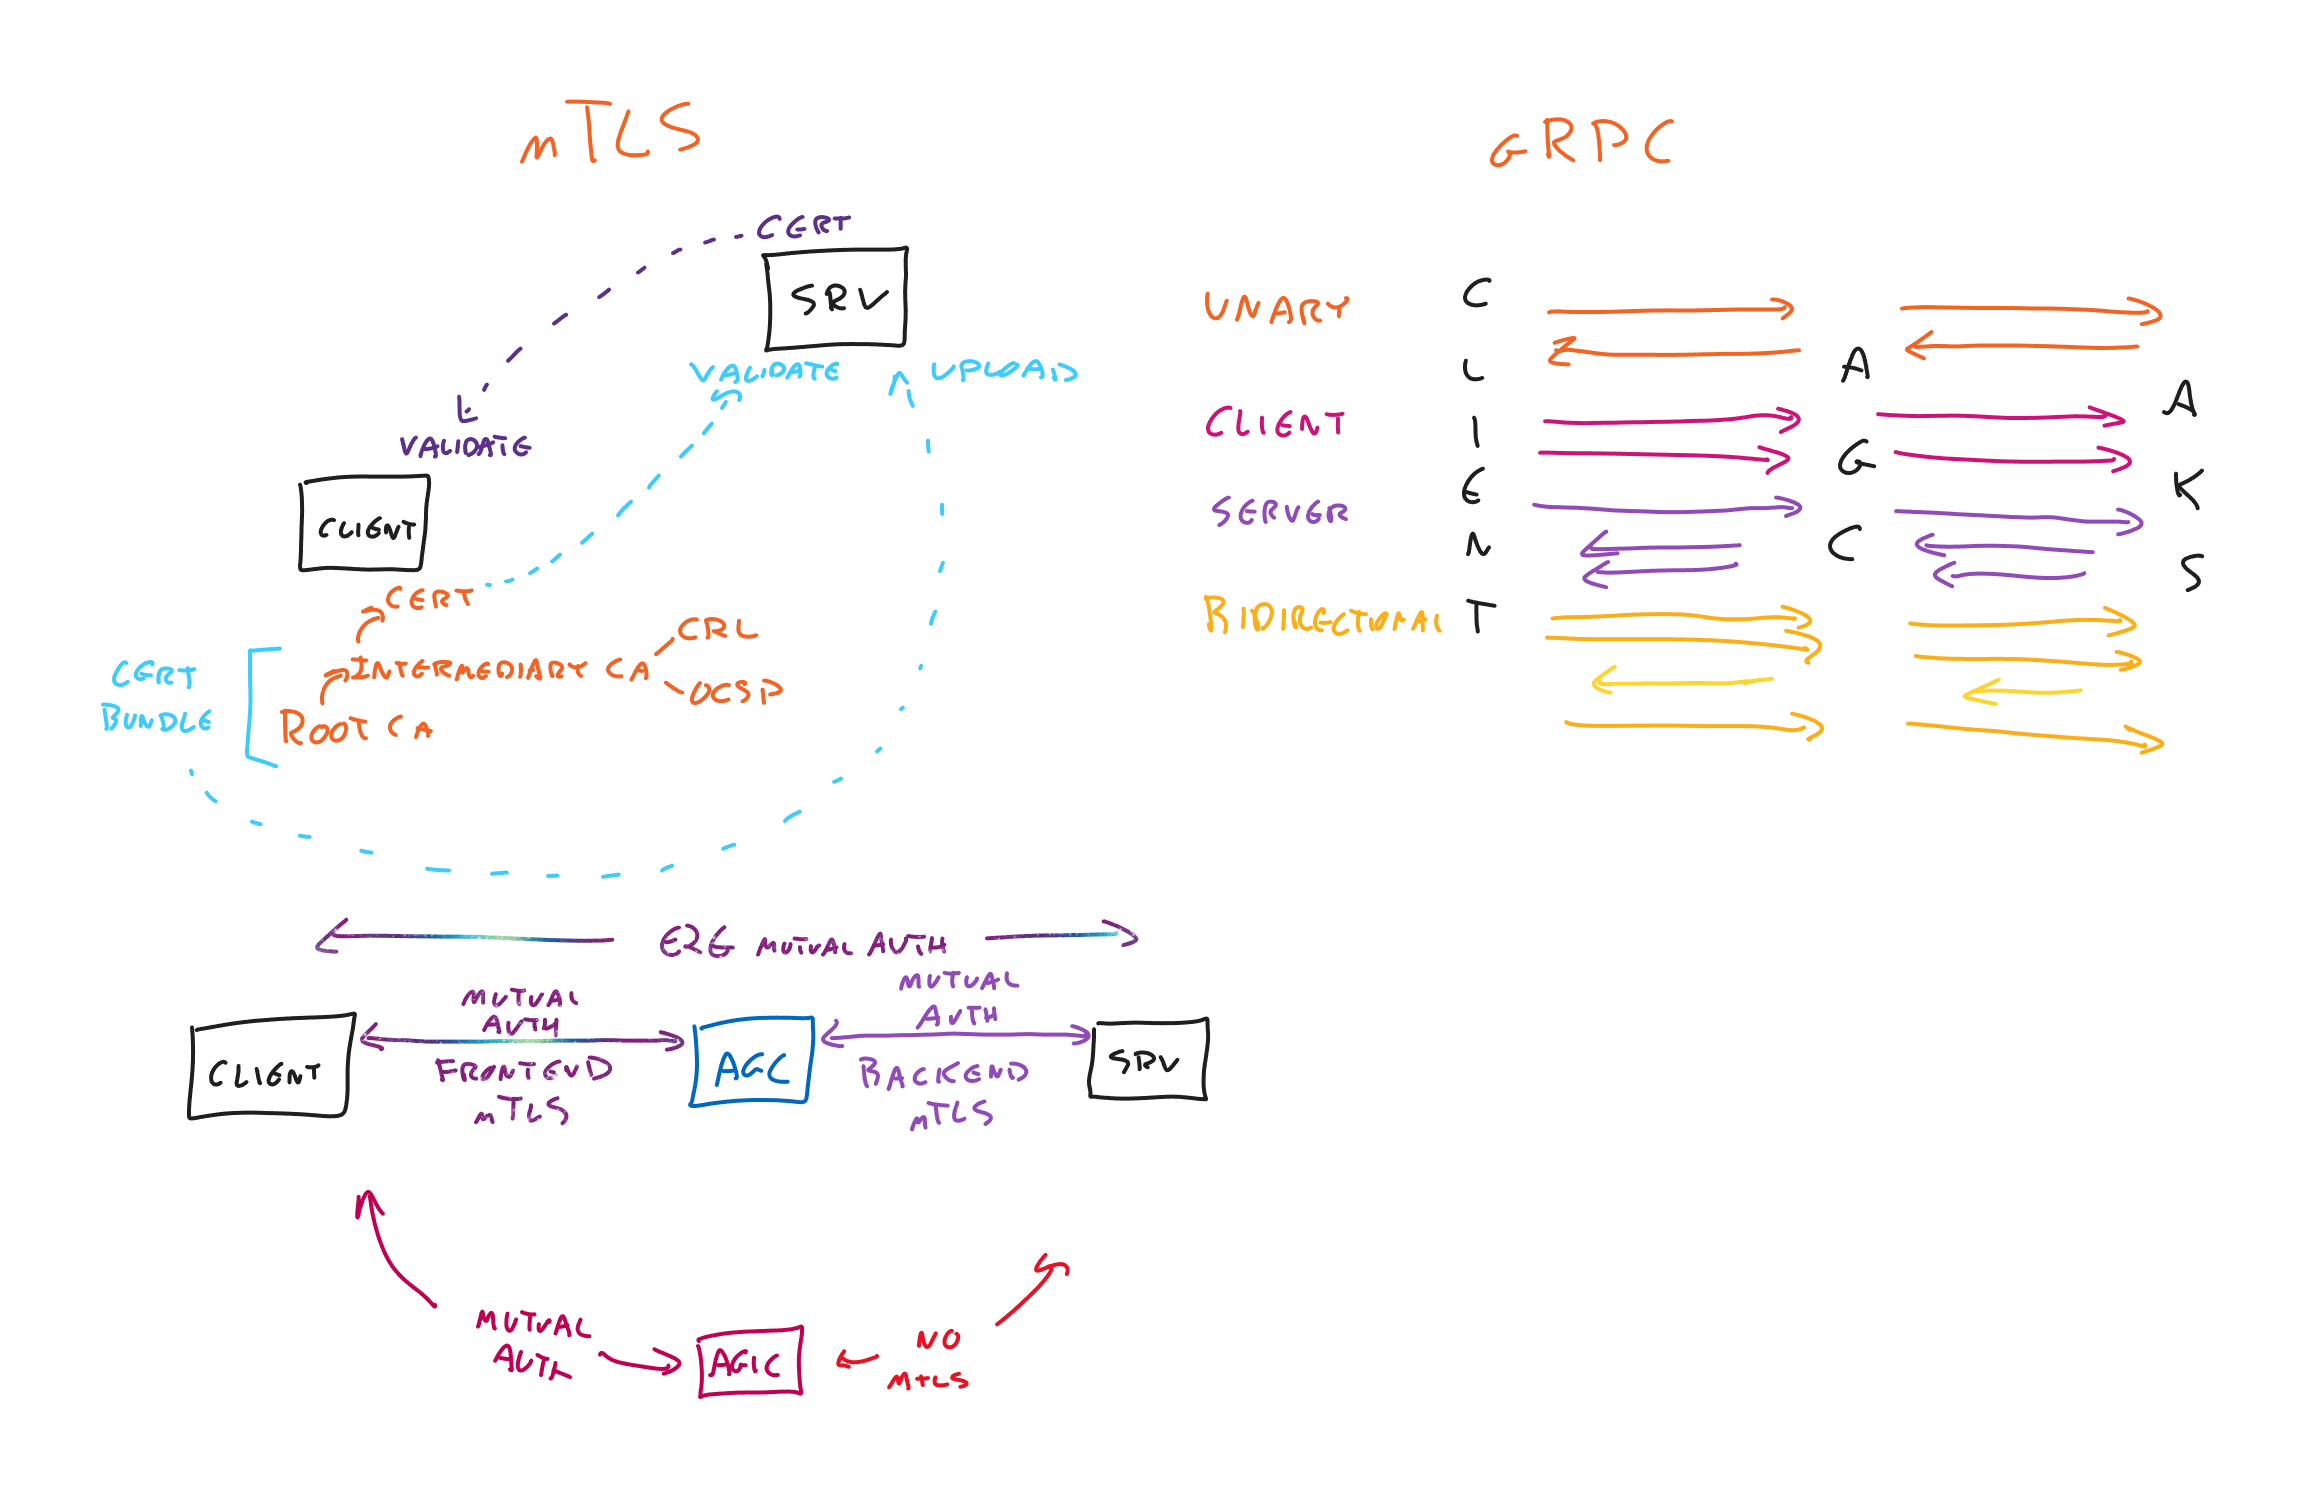 mTLS
CERT
SRV
VALIDATE
UPLOAD
VALIDATE
CLIENT
CERT
CRL
INTERMEDIARY CA
OCSP
ROOT CA
CERT
BUNDLE
E2E MUTUAL AUTH
MUTUAL
AUTH
FRONTEND
mTLS
MUTUAL
AUTH
BACKEND
mTLS
CLIENT
AGC
SRV
MUTUAL
AUTH
AGIC
NO
MTLS
GRPC
UNARY
CLIENT
SERVER
BIDIRECTIONAL
C
L
I
E
N
T
A
G
C
A
K
S